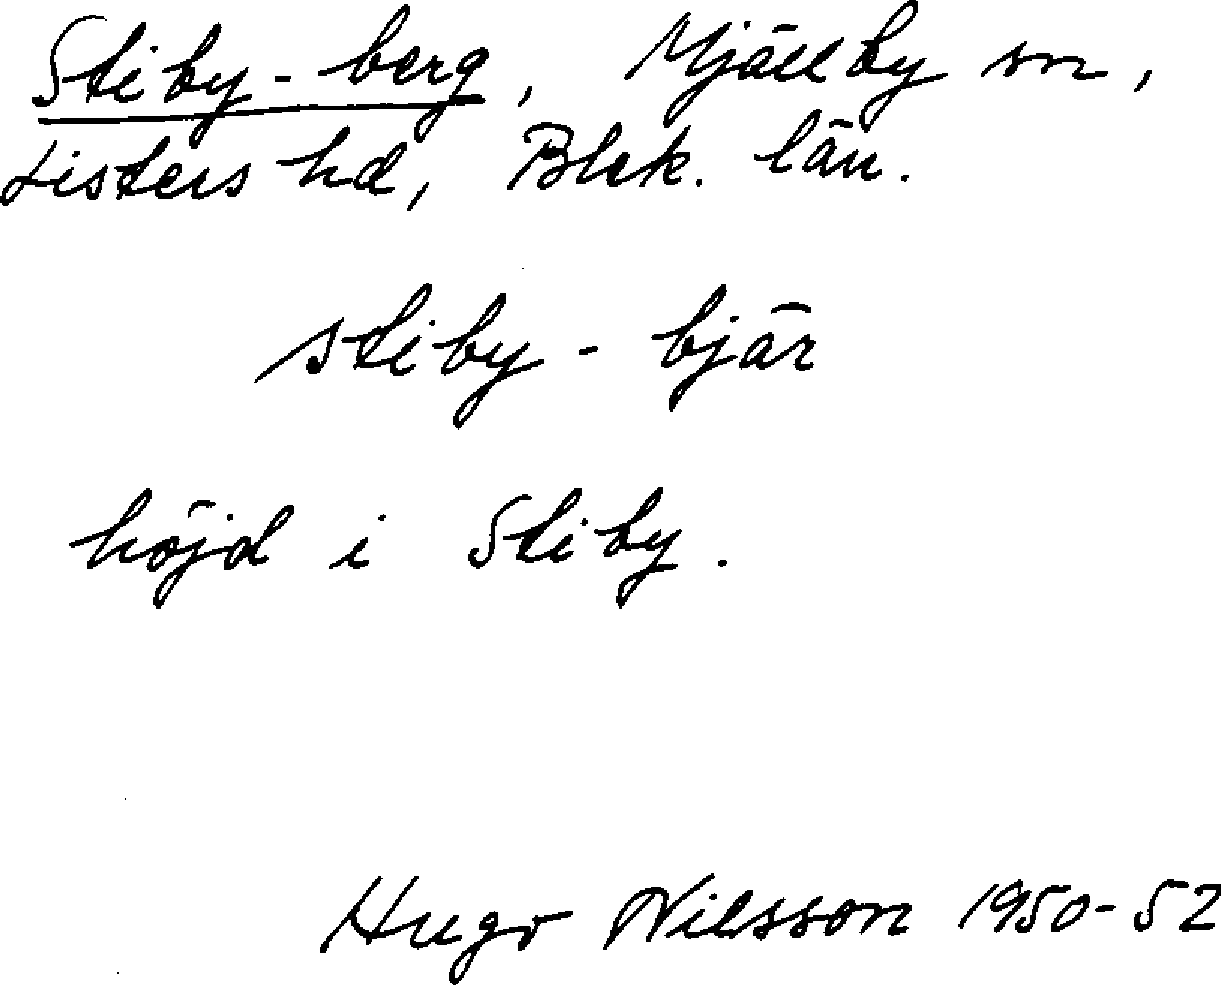 Stiby-berg, Mjällby sn,
Listers hd, Blek. län.
stiby - bjär
höjd i Stiby.
Hugo Nilsson 1950-52